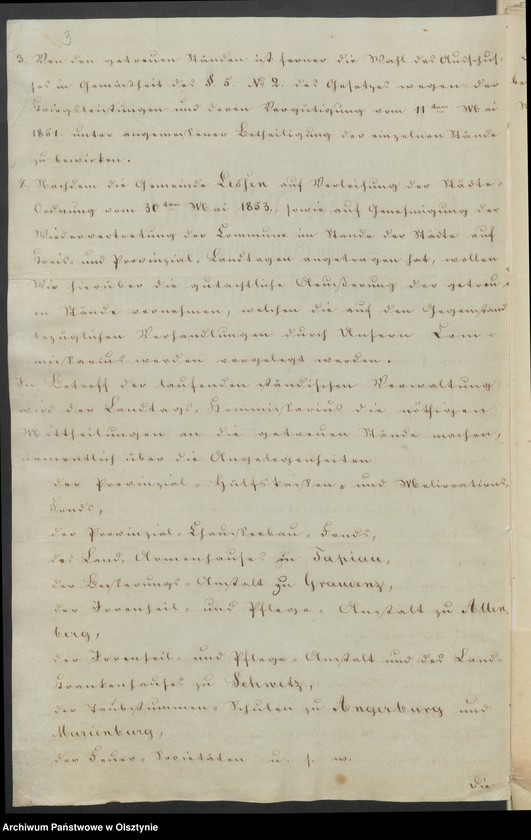 3
3. Von den getreuen Ständen ist ferner die Wahl des Ausschus-
ses in Gemäßheit des §. 5. No 2. des Gesetzes wegen der
Kriegsleistungen und deren Vergütigung vom 11ten Mai
1851. unter angemessener Betheiligung der einzelnen Stände
zu bewirken.
4. Nachdem die Gemeinde Lessen auf Verleihung der Städte-
Ordnung vom 30ten Mai 1853., sowie auf Genehmigung der
Wiedervertretung der Commune im Stande der Städte auf
Kreis- und Provinzial-Landtagen angetragen hat, wollen
Wir hierüber die gutachtliche Aeußerung der getreu-
en Stände vernehmen, welchen die auf den Gegenstand
bezüglichen Verhandlungen durch Unsern Com-
missarius werden vorgelegt werden.
In Betreff der laufenden ständischen Verwaltung
wird der Landtags-Kommissarius die nöthigen
Mittheilungen an die getreuen Stände machen,
namentlich über die Angelegenheiten
der Provinzial-Hülfskassen- und Meliorations-
Fonds,
der Provinzial-Chausseebau-Fonds,
des Land-Armenhauses in Tapiau,
der Besserungs-Anstalt zu Graudenz,
der Irrenheil- und Pflege-Anstalt zu Allen-
berg,
der Irrenheil- und Pflege-Anstalt und des Land-
Krankenhauses zu Schwetz,
der Taubstummen-Schulen zu Angerburg und
Marienburg,
der Feuer-Societäten u. s. w.
Die
Archiwum Państwowe w Olsztynie